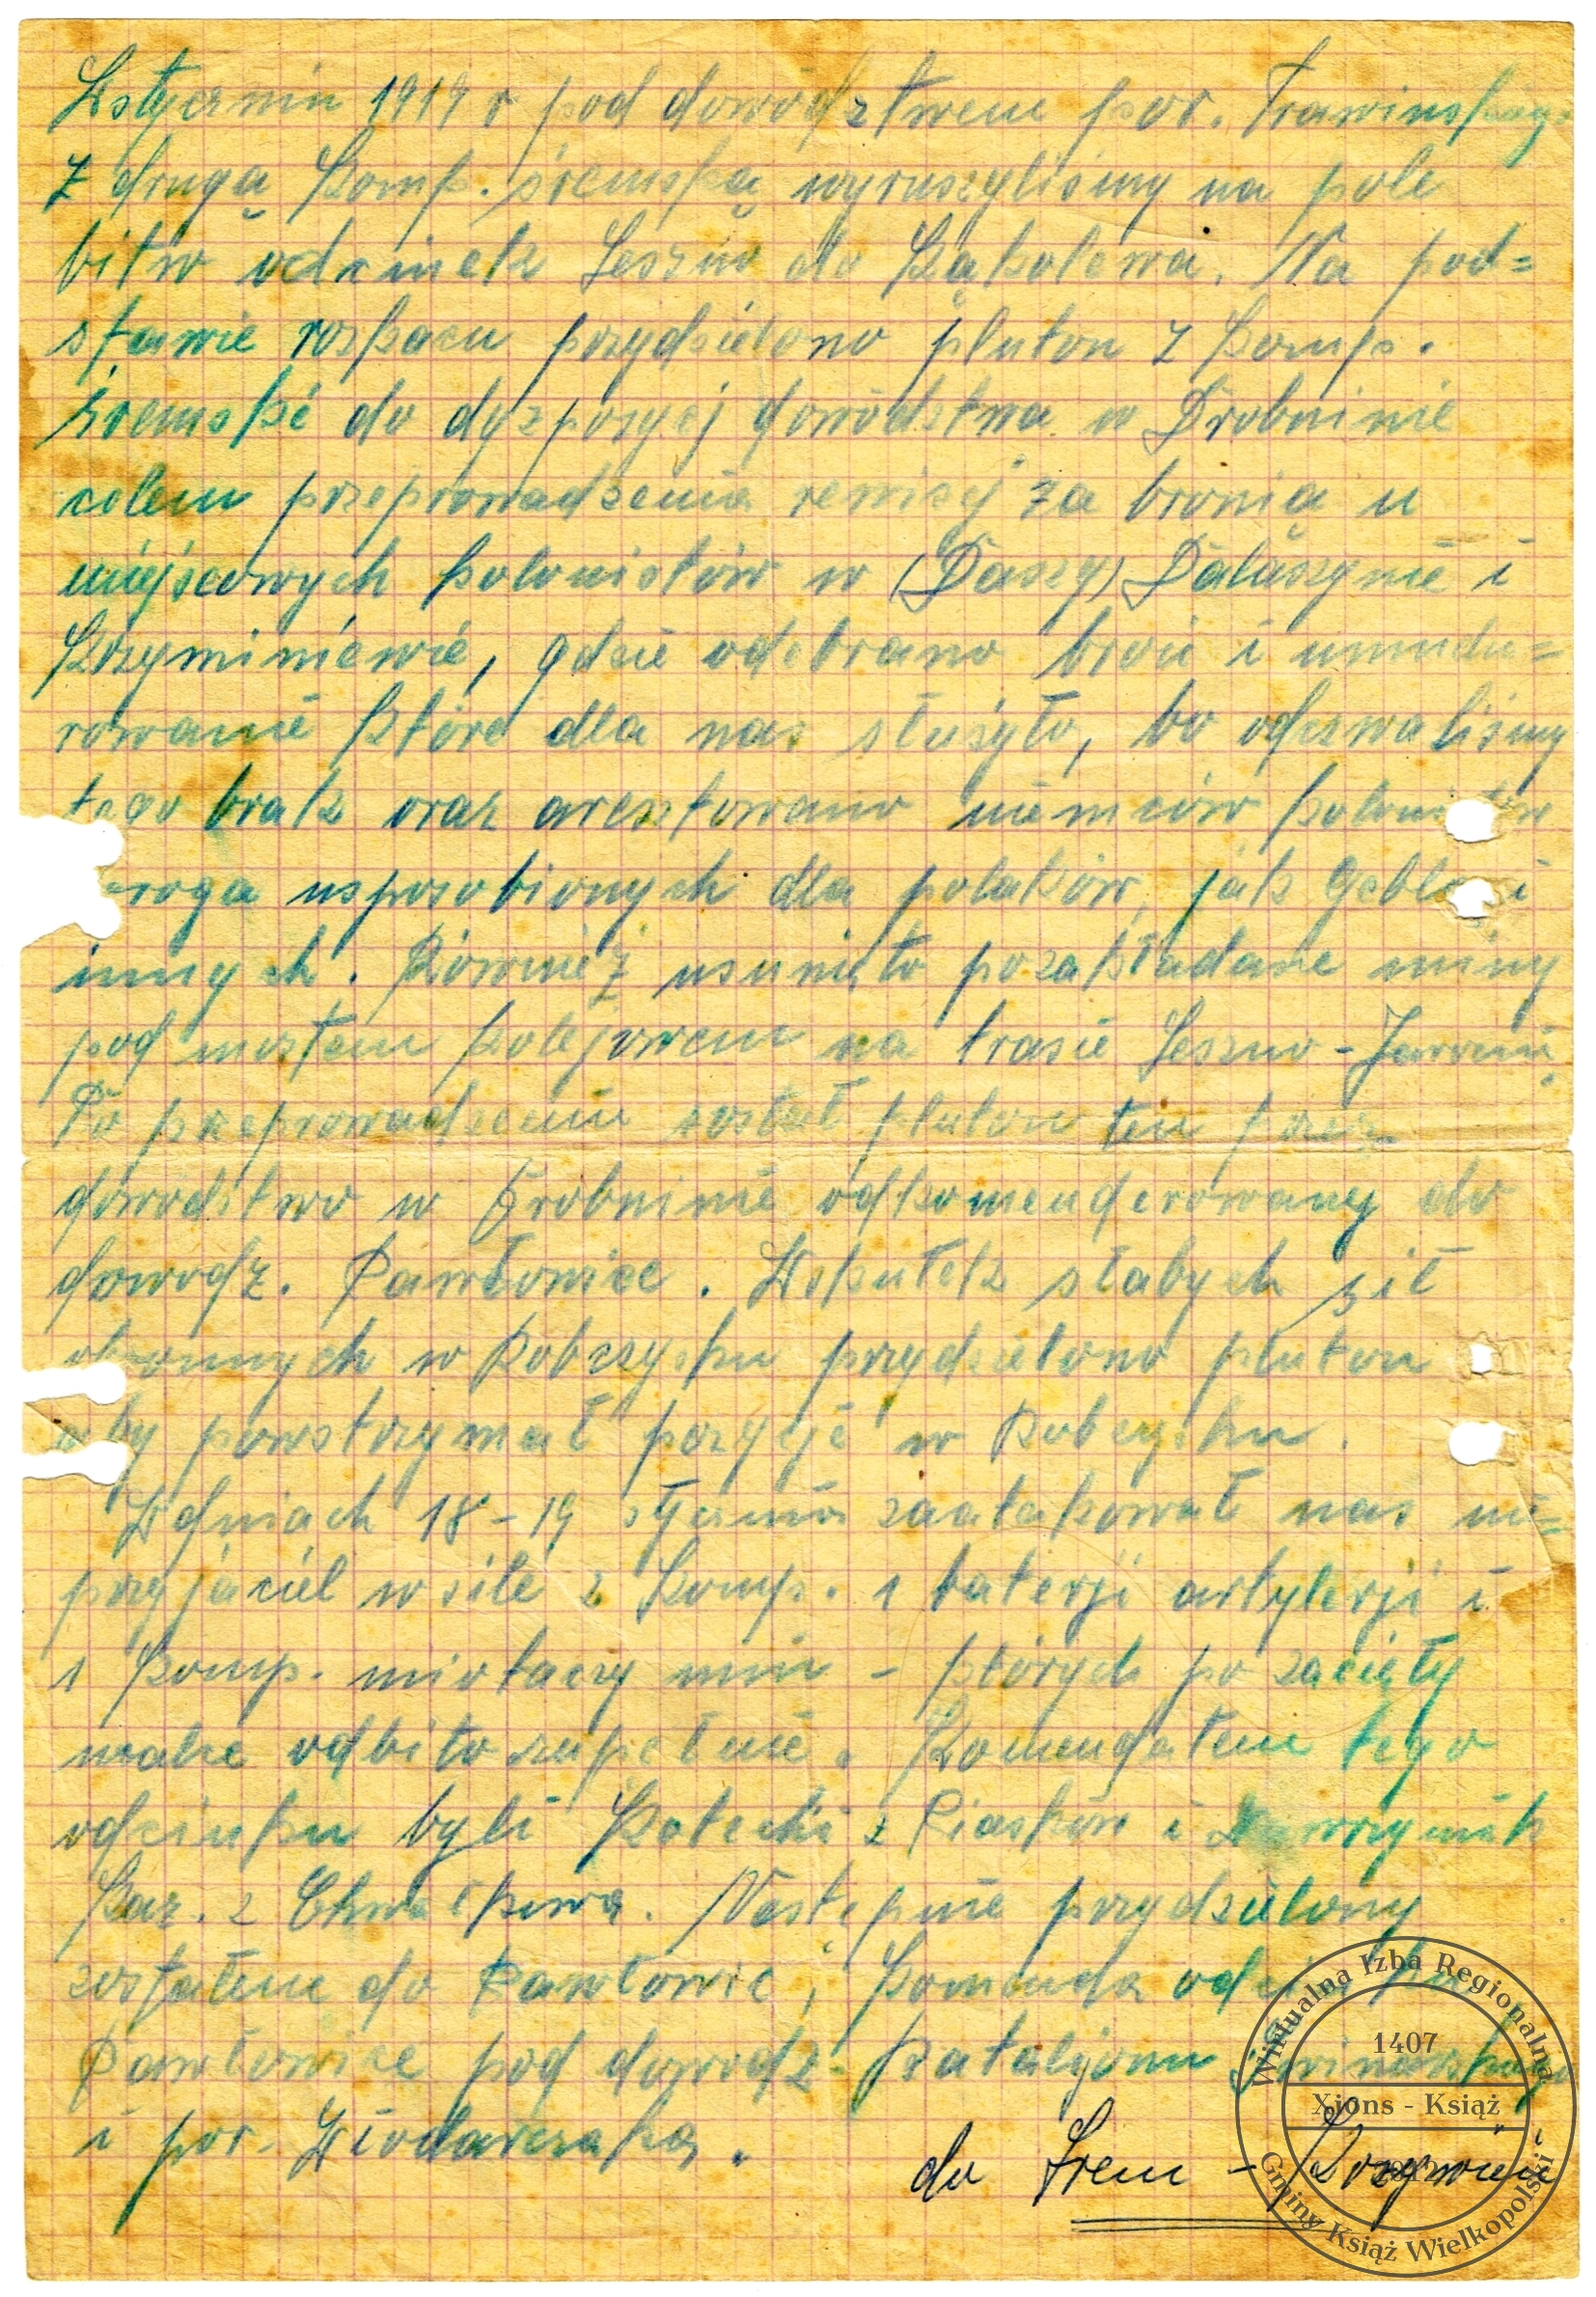 W styczniu 1919 r pod dowództwem por. Trawinskiego
z drugą komp. śremską wyruszyliśmy na pole
bitw odcinek Leszno do Kąkolewa. Na pod=
stawie roskazu przydzielono pluton z komp.
śremské do dyzpozycj dowódstwa w Drobninie
celem przeprowadzenia rewizej za bronią u
miejscowych kolonistów w (Daszy) Dalaszynie i
Krzyminiewie, gdzie odebrano broń i umundu=
rowanie które dla nas służyło, bo odczwaliśmy
tego brak oraz aresztowano niemców kolonistów
wroga usposobionych dla polaków, jak Gebler i
innych. Również usunięto pozakładane miny
pod mostem kolejowem na trasie Leszno - Jarocin
Po przeprowadzeniu został pluton ten przez
dowodstwo w Drobninie odkomenderowany do
dowodz. Pawłowice. Wskutek słabych sił
obronnych w Robczysku przydzielono pluton
aby powstrzymał pozycje w Robczysku.
W dniach 18-19 stycznia zaatakował nas nie=
przyjaciel w sile 2 komp. 1 baterji artylerji i
1 komp. miotaczy min - których po zacięty
walce odbito zupełnie. Komendatem tego
odcinku byli Kotecki z Piasków i
Kaz. z Chwałkowa. Następnie przydzielony
zostałem do Pawłowic, komenda odcinku
Pawłowice pod dowodz. batalijonu
i por. Włodarczaka.
do Śrem - Krzywiń
Wirtualna Izba Regionalna
1407
Xions - Książ
Gminy Książ Wielkopolski